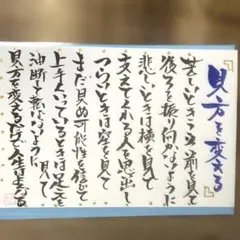 見方を変える
苦しいときこそ前を見て
後ろを振り向かないように
悲しいときは横を見て
支えてくれる人を思出し
つらいときは空を見て
まだ見ぬ可能性を信じて
上手くいっているときは足元を見て
油断して転ばないように
見方を変えるだけで人生は変わる